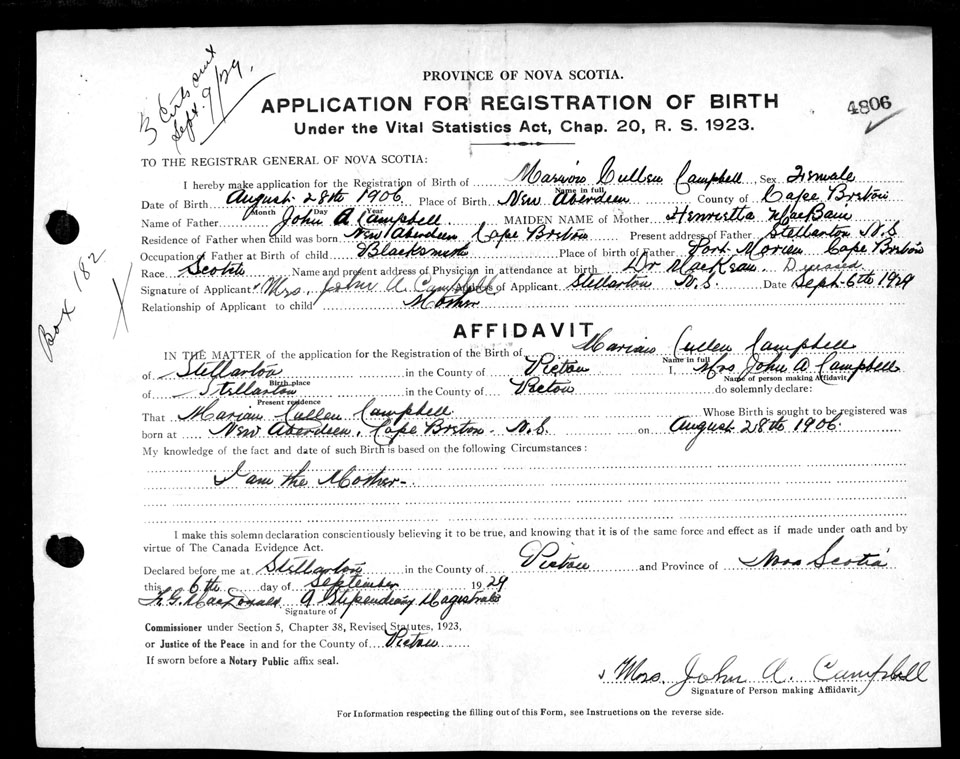 3 Certs sent
Sept. 9/29.
PROVINCE OF NOVA SCOTIA.
APPLICATION FOR REGISTRATION OF BIRTH
4806
Under the Vital Statistics Act, Chap. 20, R. S. 1923.
TO THE REGISTRAR GENERAL OF NOVA SCOTIA:
I hereby make application for the Registration of Birth of Marion Cullen Campbell Sex Female
Name in full
Date of Birth August 28th 1906 Place of Birth New Aberdeen County of Cape Breton
Month Day Year
Name of Father John A Campbell MAIDEN NAME of Mother Henrietta MacBain
Residence of Father when child was born New Aberdeen Cape Breton Present address of Father Stellarton N.S
Occupation of Father at Birth of child Blacksmith Place of birth of Father Port Morien Cape Breton
Race Scotch Name and present address of Physician in attendance at birth Dr Deceased
Signature of Applicant Mrs. John A Campbell Address of Applicant Stellarton N.S. Date Sept-6th 1929
Relationship of Applicant to child Mother
Box 182
AFFIDAVIT
IN THE MATTER of the application for the Registration of the Birth of Marian Cullen Campbell
Name in full
of Stellarton in the County of Pictou I, Mrs John A Campbell
Birth place Name of person making Affidavit
of Stellarton in the County of Pictou do solemnly declare:
Present residence
That Marian Cullen Campbell Whose Birth is sought to be registered was
born at New Aberdeen, Cape Breton- N.S. on August 28th 1906.
My knowledge of the fact and date of such Birth is based on the following Circumstances:
I am the Mother-
I make this solemn declaration conscientiously believing it to be true, and knowing that it is of the same force and effect as if made under oath and by
virtue of The Canada Evidence Act.
Declared before me at Stellarton in the County of Pictou and Province of Nova Scotia
this 6th day of September 1929
G. MacDonald A Stipendiary Magistrate
Signature of
Commissioner under Section 5, Chapter 38, Revised Statutes, 1923,
or Justice of the Peace in and for the County of Pictou
If sworn before a Notary Public affix seal.
Mrs. John A. Campbell
Signature of Person making Affidavit.
For Information respecting the filling out of this Form, see Instructions on the reverse side.